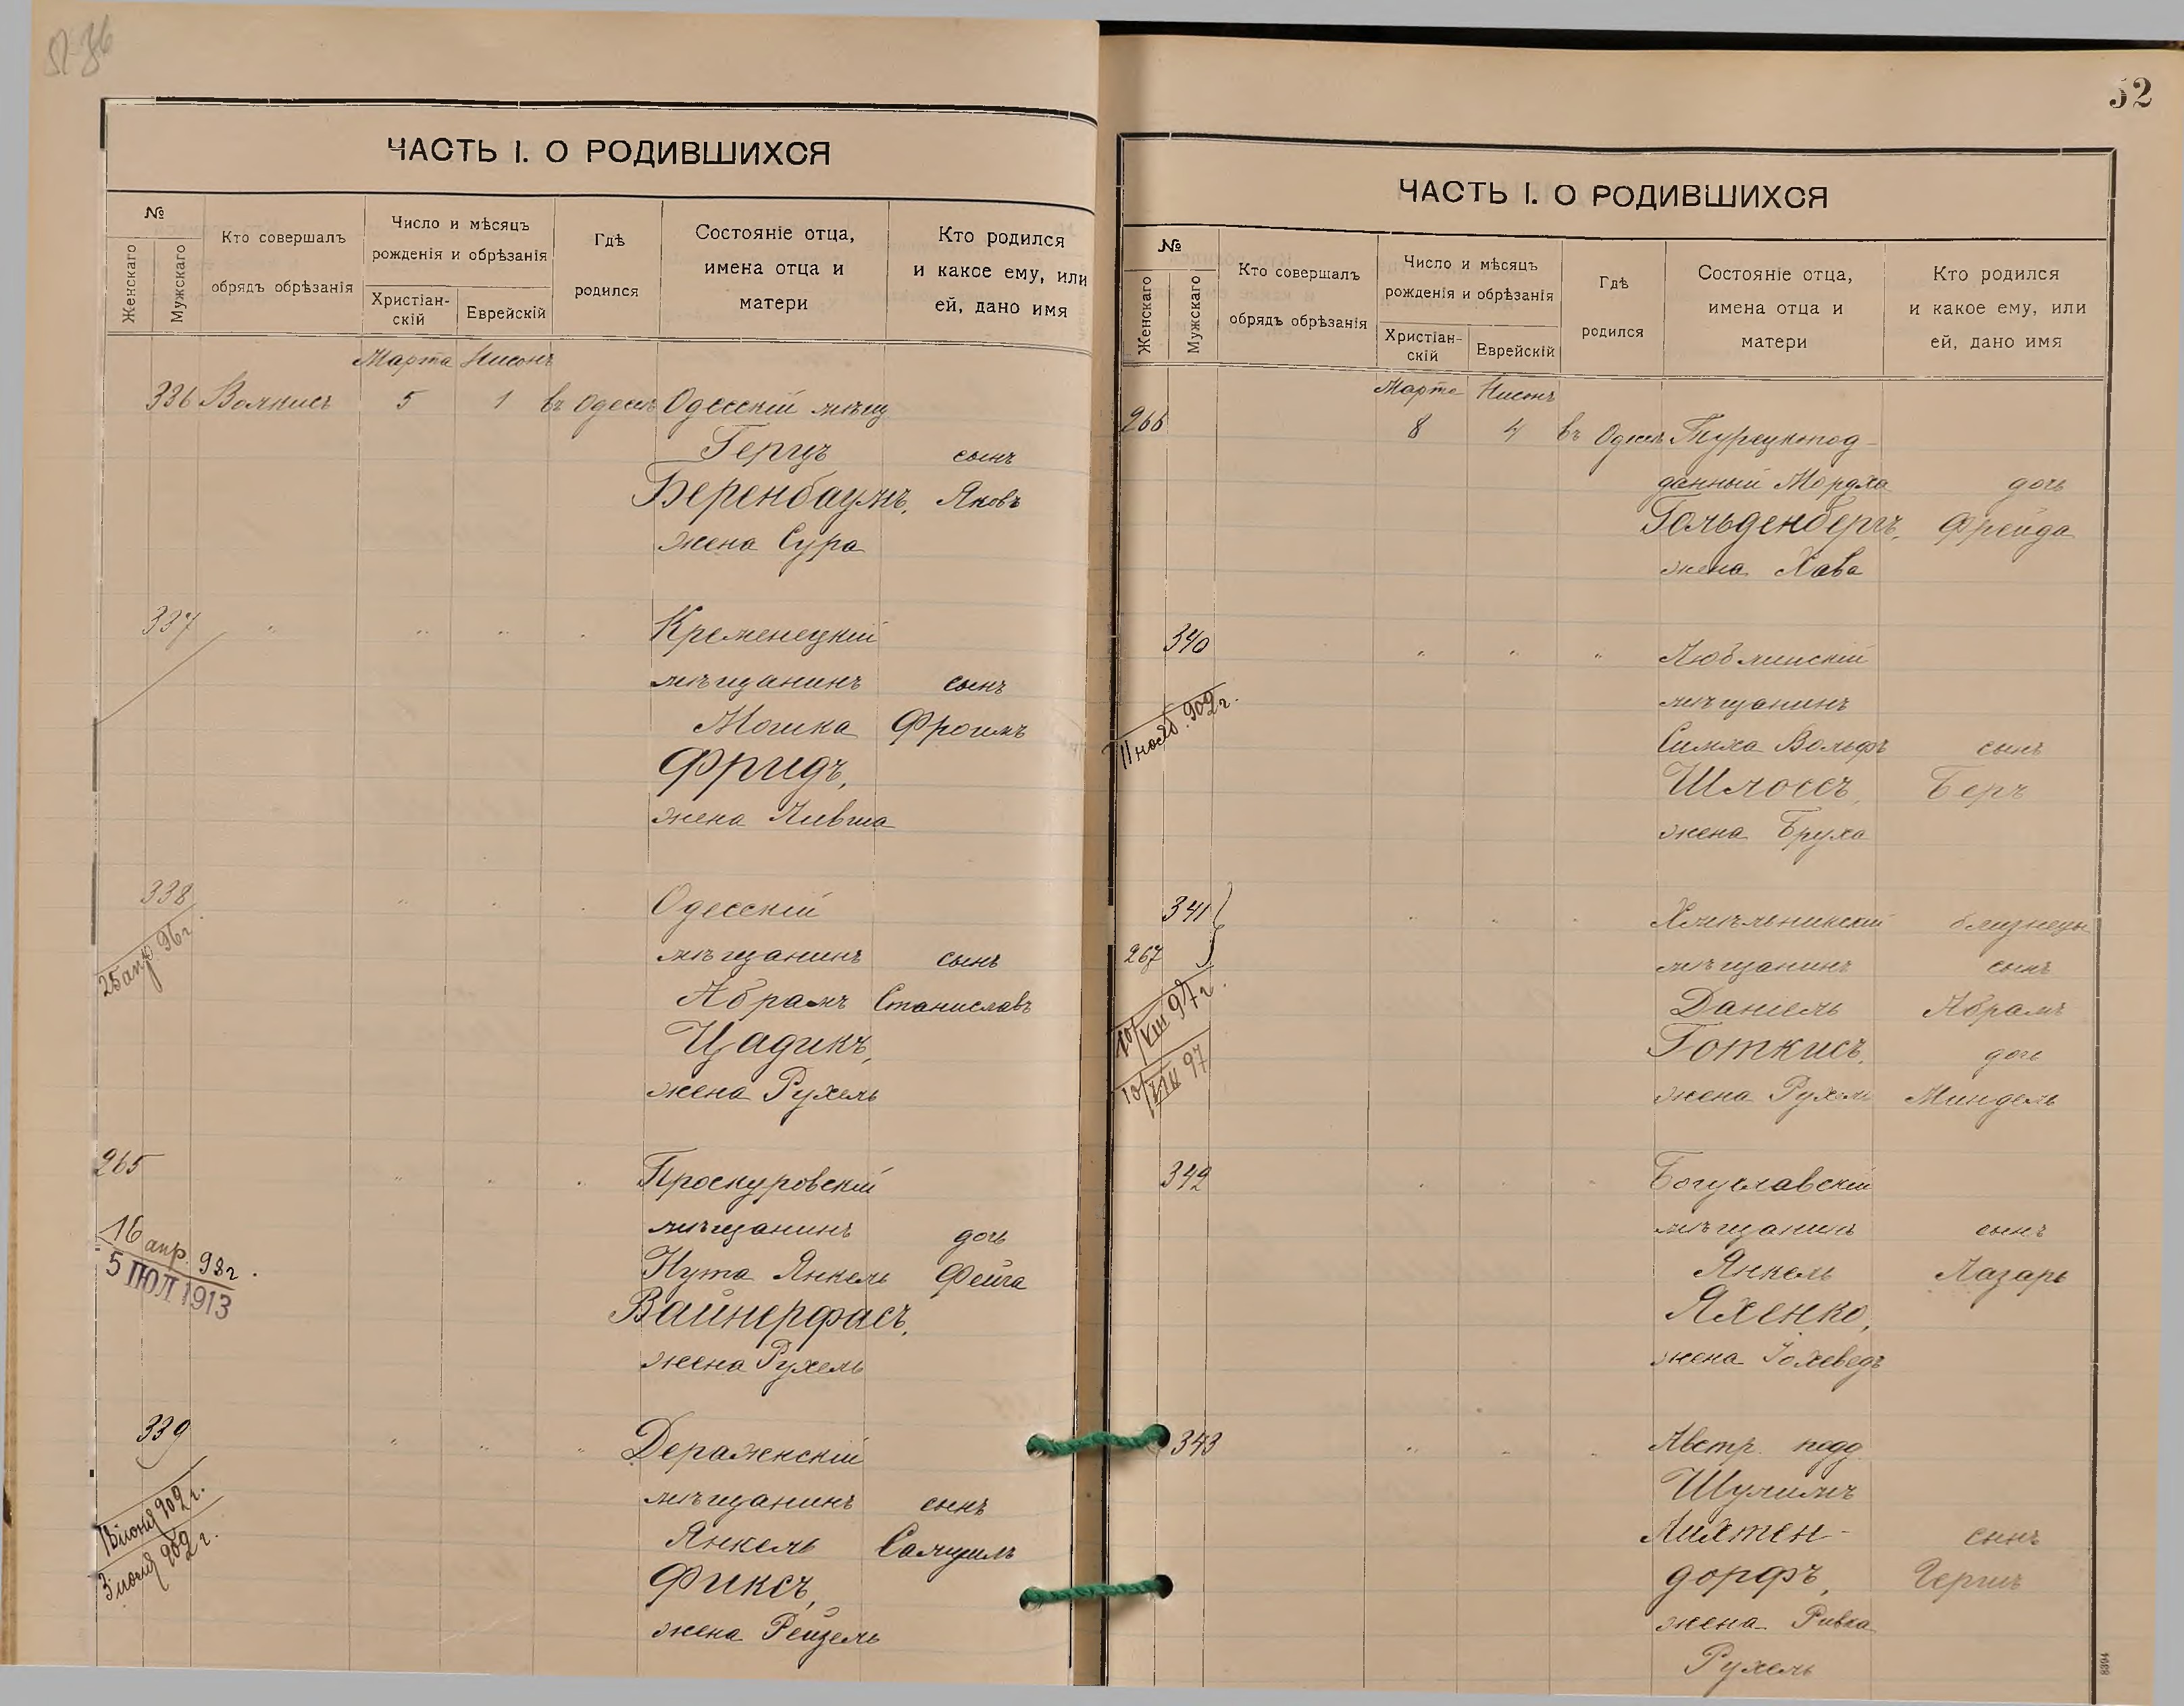 51-36
ЧАСТЬ I. О РОДИВШИХСЯ
№
Женскаго
Мужскаго
Кто совершалъ
обрядъ обрѣзанія
Число и мѣсяцъ
рожденія и обрѣзанія
Христіан-
скій
Еврейскій
Гдѣ
родился
Состояніе отца,
имена отца и
матери
Кто родился
и какое ему, или
ей, дано имя
Марта Нисонъ
336 5 1 въ Одессѣ Одесскій мѣщ
Герцъ сынъ
Беренбаумъ, Яковъ
жена Сура
337 " " " " Кременецкій
мѣщанинъ сынъ
Мошка Фроимъ
Фридъ,
жена
338 " " " Одесскій
25 апр. 96 г.
мѣщанинъ сынъ
Абрамъ Станиславъ
Цадикъ,
жена Рухель
265 " " " Проскуровскій
мѣщанинъ дочь
16 апр. 98 г.
5 ІЮЛ 1913
Нута Янкель Фейга
Вайнерфасъ,
жена Рухель
339 " " " Деражнскій
мѣщанинъ сынъ
909 г.
3 909 г.
Янкель Самуилъ
Фиксъ,
жена Рейзель
52
ЧАСТЬ I. О РОДИВШИХСЯ
№
Женскаго
Мужскаго
Кто совершалъ
обрядъ обрѣзанія
Число и мѣсяцъ
рожденія и обрѣзанія
Христіан-
скій
Еврейскій
Гдѣ
родился
Состояніе отца,
имена отца и
матери
Кто родился
и какое ему, или
ей, дано имя
Марта Нисонъ
266 8 4 въ Одессѣ Турецкопод-
данный Мордха дочь
Гольденбергъ, Фрейда
жена Хава
340 " " " Люблинскій
мѣщанинъ
11 нояб. 909 г.
Симха Вольфъ сынъ
Шлоссъ, Беръ
жена Бруха
341 " " " Хмѣльникскій близнецы
267 мѣщанинъ сынъ
10/VIII 97 г.
10/VIII 97
Даніель Абрамъ
Готкисъ, дочь
жена Рухель Миндель
342 " " " Богуславскій
мѣщанинъ сынъ
Янкель Лазарь
Яхенко,
жена Іохеведъ
343 " " " Австр. подд.
Шулимъ
Лихтен- сынъ
дорфъ, Гершъ
жена Ривка
Рухель
8394